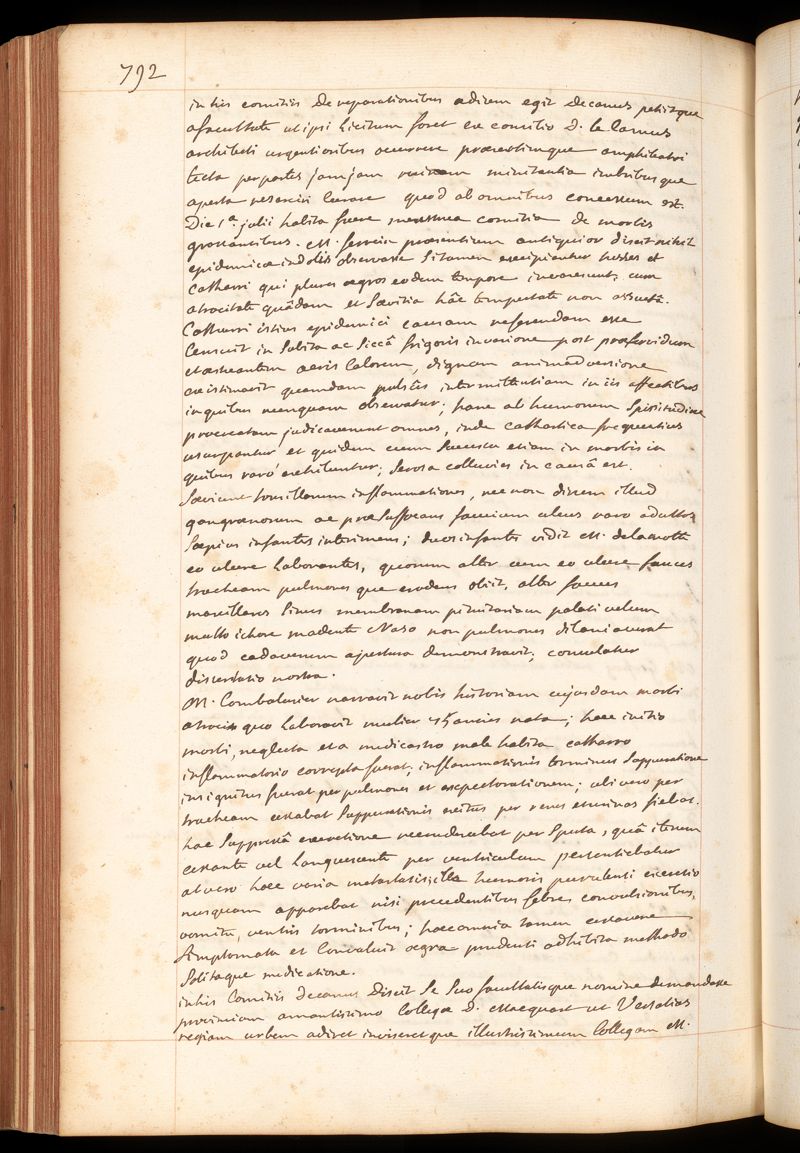 792
in his comitiis De reparationibus ædium egit decanus petiitque
a facultate ut ipsi Licitum foret ex consilio D. le Camus
architecti urgentioribus occurrere præsertimque amphiteatri
tecta per partes jam jam ruinam minitantia imbribusque
aperta resarciri curare quod ab omnibus concessum est.
Die 1ª. julii habita fuere menstrua comitia de morbis
grassantibus. M. ferrein præsentium antiquior dixit nihil
epidemicæ indolis observasse si tamen excipiantur tusses et
catharri qui plures ægros eodem tempore invasere, cum
atrocitate quâdam et Sævitia hâc tempestate non assuetâ.
Catharri istius epidemici causam referendam esse
Censuit in Subita ac Siccâ frigoris invasione post præfervidum
et æstuantem aeris Calorem, dignam animadversione
existimavit quamdam pulsûs intermittentiam in iis affectibus
in quibus nunquam observatur; hanc ab humorum Spissitudine
procreatam judicaverunt omnes, inde cathartica frequentius
usurpantur et quidem cum Successu etiam in morbis in
quibus raro exhibentur; Serosa colluvies in causâ est.
Sæviunt tonsillarum inflammationes, nec non dirum illud
gangrænosum ac præsuffocans faucium ulcus raro adultos
Sæpius infantes interimens; duos infantes vidit M. delamotte
eo ulcere Laborantes, quorum alter cum eo ulcere fauces
tracheam pulmonesque erodens obiit, alter fauces
maxillares Sinus membranam pituitariam palati velum
multo ichore madente Naso non pulmones dilaniaverat
quod cadaverum apertura demonstravit; consulatur
dissertatio nostra.
M. Combalusier narravit nobis historiam cujusdam morbi
atrocis quo Laboravit mulier 45 annos nata; hæc initio
morbi, neglecta et a medicastro male habita catharro
inflammatorio correpta fuerat; inflammationis terminus Suppuratione
insignitus fuerat per pulmones et expectorationem; ubi vero per
tracheam cessabat Suppurationis exitus per renes et urinas fiebat.
hac Suppressâ excretione recrudescebat per Sputa, quâ iterum
cessante vel Languescente per ventriculum persentiebatur
at vero hæc varia metastasis illa humoris purulenti excretio
nusquam apparebat nisi precedentibus febre convulsionibus,
vomitu, ventris torminibus; hæc omnia tamen cessavere
Simptomata et Convaluit ægra prudenti adhibita methodo
Solitaque medicatione.
in his Comitiis decanus Dixit Se Suo facultatisque nomine demandasse
provinciam amantissimo Collegæ D. Macquart ut Versalias
regiam urbem adiret inviseretque illustrissimum Collegam M.